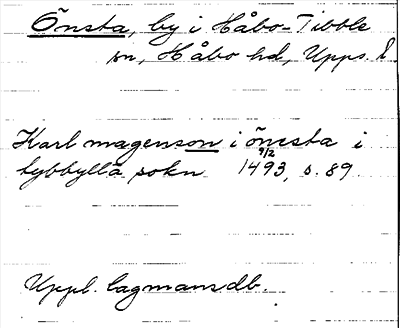 Önsta, by i Håbo-Tibble
sn, Håbo hd, Upps. l.
Karl magenson i önesta i
tybbylla sokn 9/2 1493, s. 89
Uppl. lagmansdb.